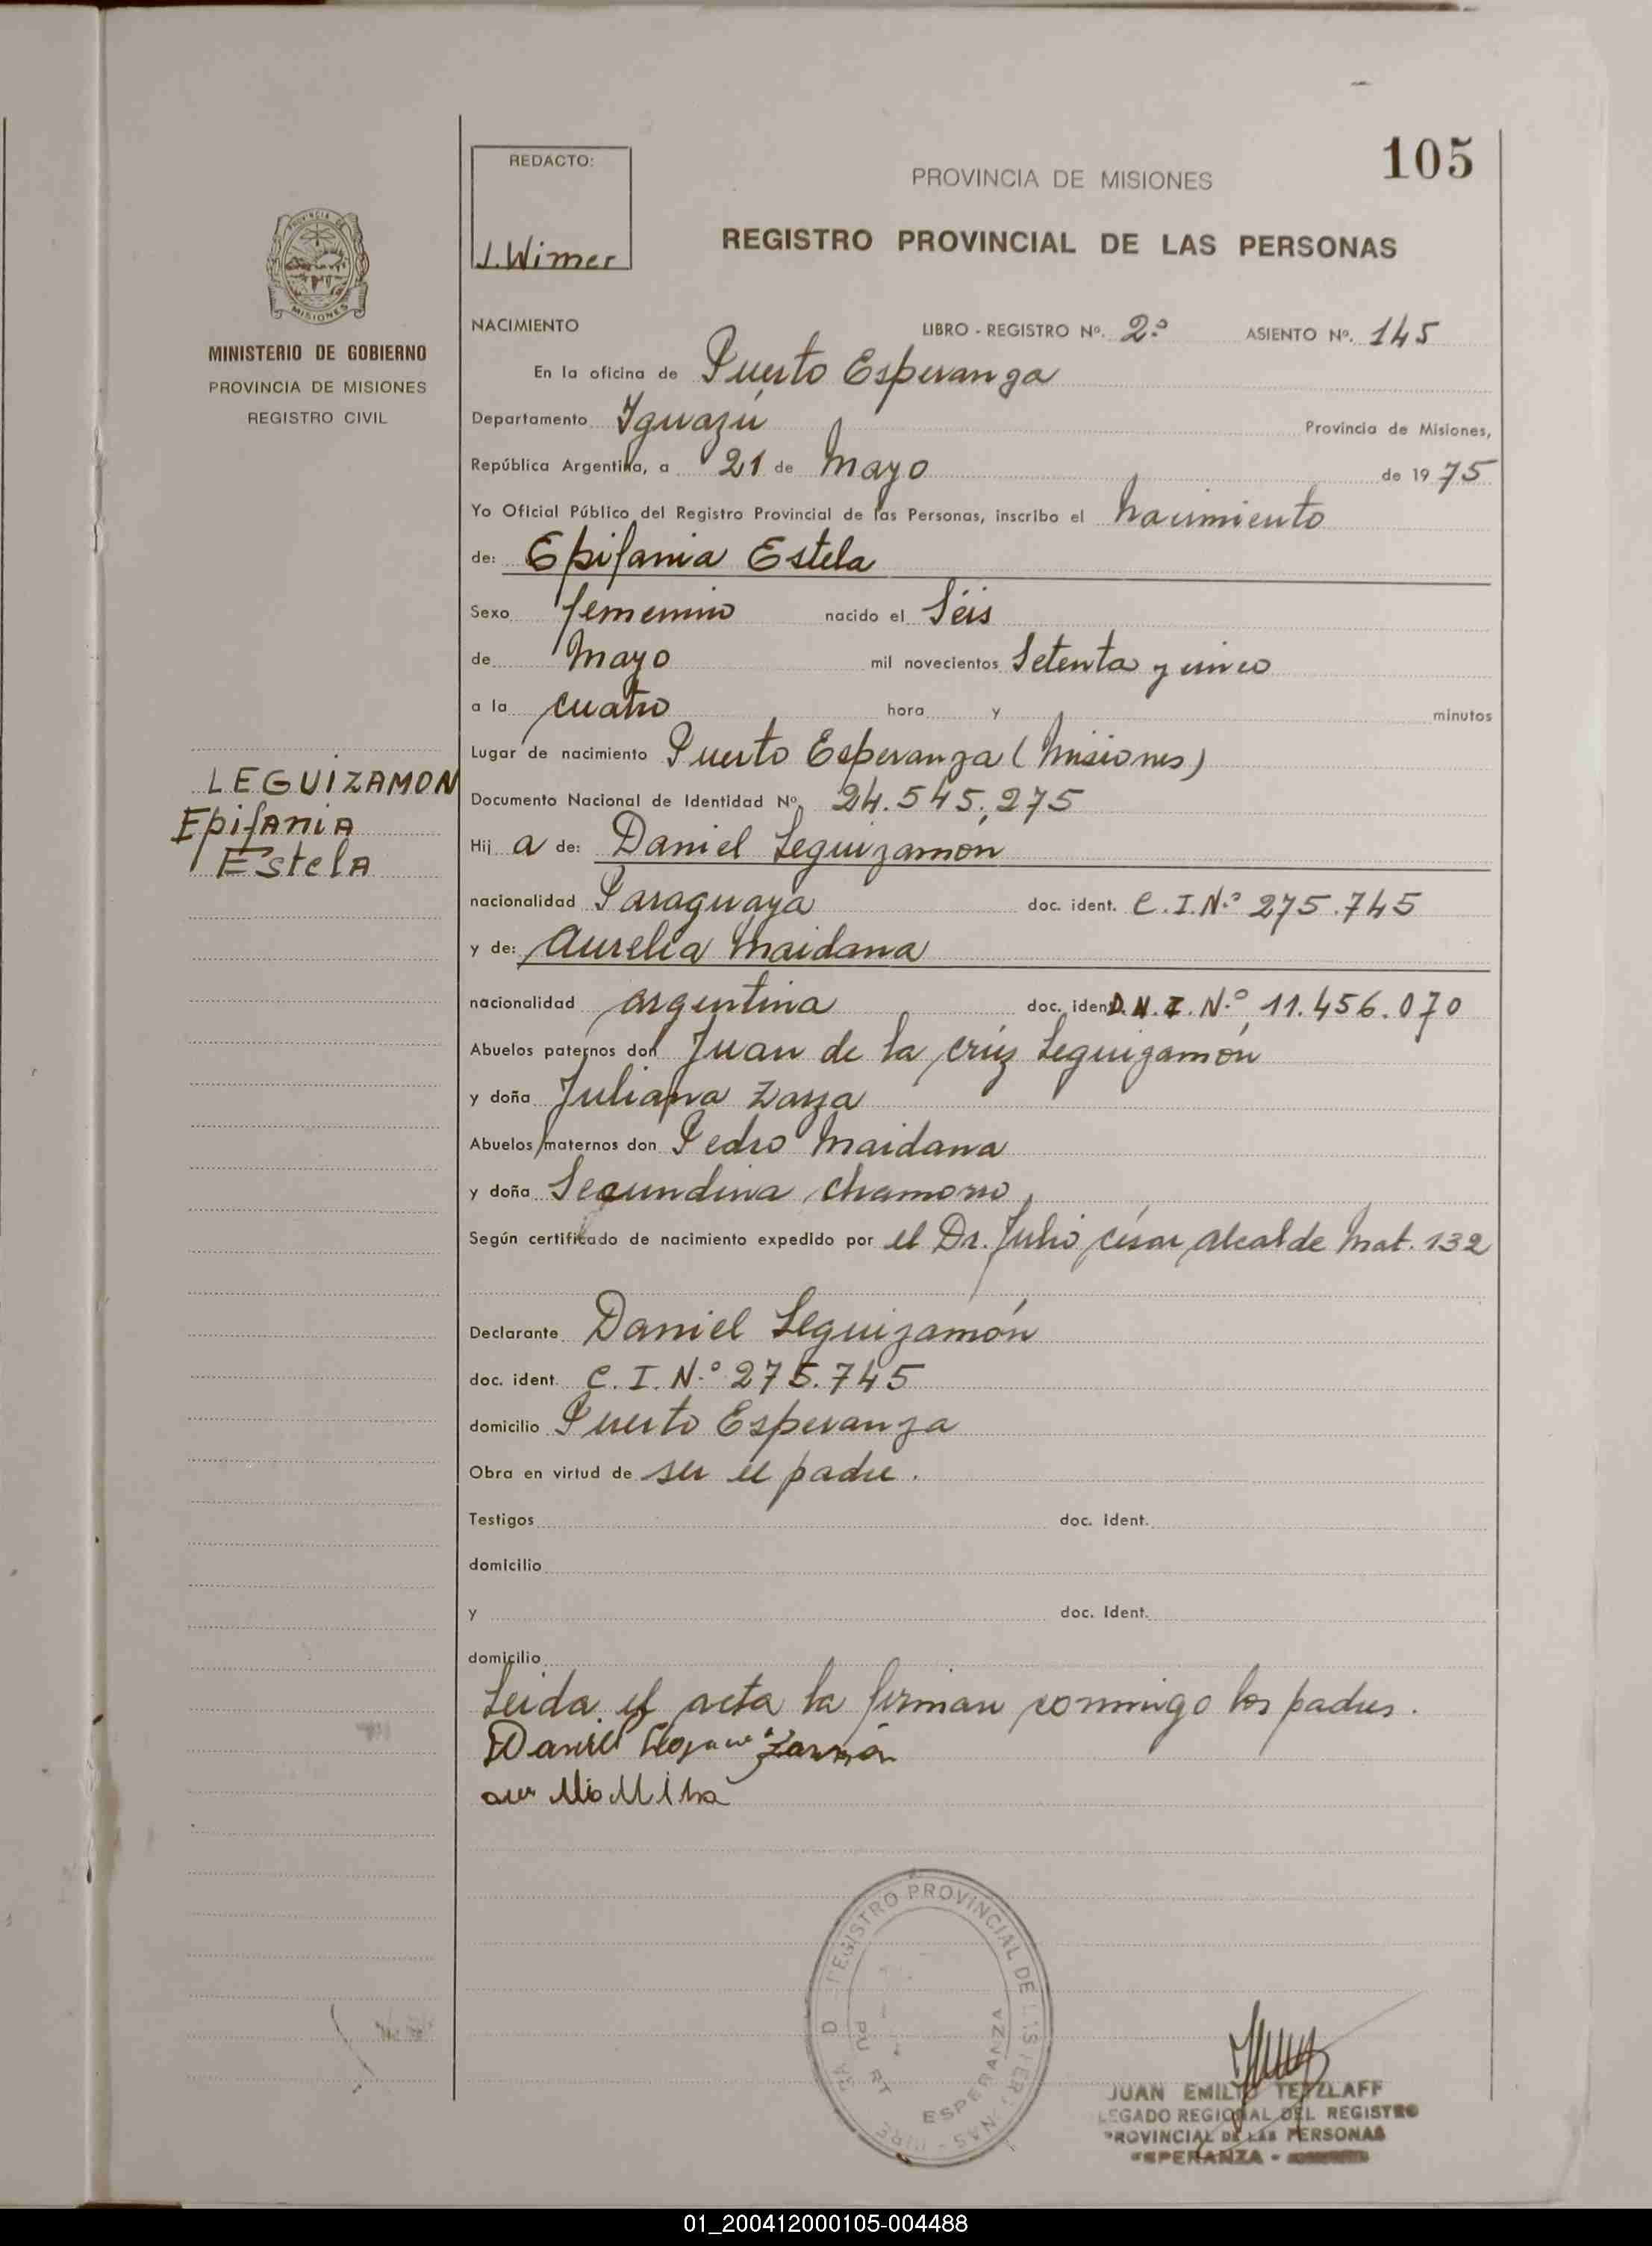 105
REDACTO:
J. Wimer
PROVINCIA DE MISIONES
REGISTRO PROVINCIAL DE LAS PERSONAS
PROVINCIA DE
MISIONES
MINISTERIO DE GOBIERNO
PROVINCIA DE MISIONES
REGISTRO CIVIL
NACIMIENTO LIBRO - REGISTRO Nº. 2º ASIENTO Nº. 145
En la oficina de Puerto Esperanza
Departamento Iguazú Provincia de Misiones,
República Argentina, a 21 de Mayo de 19 75
Yo Oficial Público del Registro Provincial de las Personas, inscribo el Nacimiento
de: Epifania Estela
Sexo femenino nacido el Séis
de Mayo mil novecientos Setenta y cinco
a la cuatro hora y minutos
Lugar de nacimiento Puerto Esperanza (Misiones)
LEGUIZAMON
Epifania
Estela
Documento Nacional de Identidad Nº 24.545.275
Hij a de: Daniel Leguizamón
nacionalidad Paraguaya doc. ident. C.I.Nº 275.745
y de: Aurelia Maidana
nacionalidad argentina doc. ident D.N.I. Nº 11.456.070
Abuelos paternos don Juan de la crúz Leguizamón
y doña Juliana Zarza
Abuelos maternos don Pedro Maidana
y doña Secundina Chamorro,
Según certificado de nacimiento expedido por el Dr. Julio césar Alcalde Mat. 132
Declarante Daniel Leguizamón
doc. ident. C.I.Nº 275.745
domicilio Puerto Esperanza
Obra en virtud de ser el padre.
Testigos doc. ident.
domicilio
y doc. ident.
domicilio
Leida el acta la firman conmigo los padres.
REGISTRO PROVINCIAL DE
ESPERANZA
JUAN EMILIO TETZLAFF
LEGADO REGIONAL DEL REGISTRO
PROVINCIAL DE LAS PERSONAS
ESPERANZA -
01_200412000105-004488